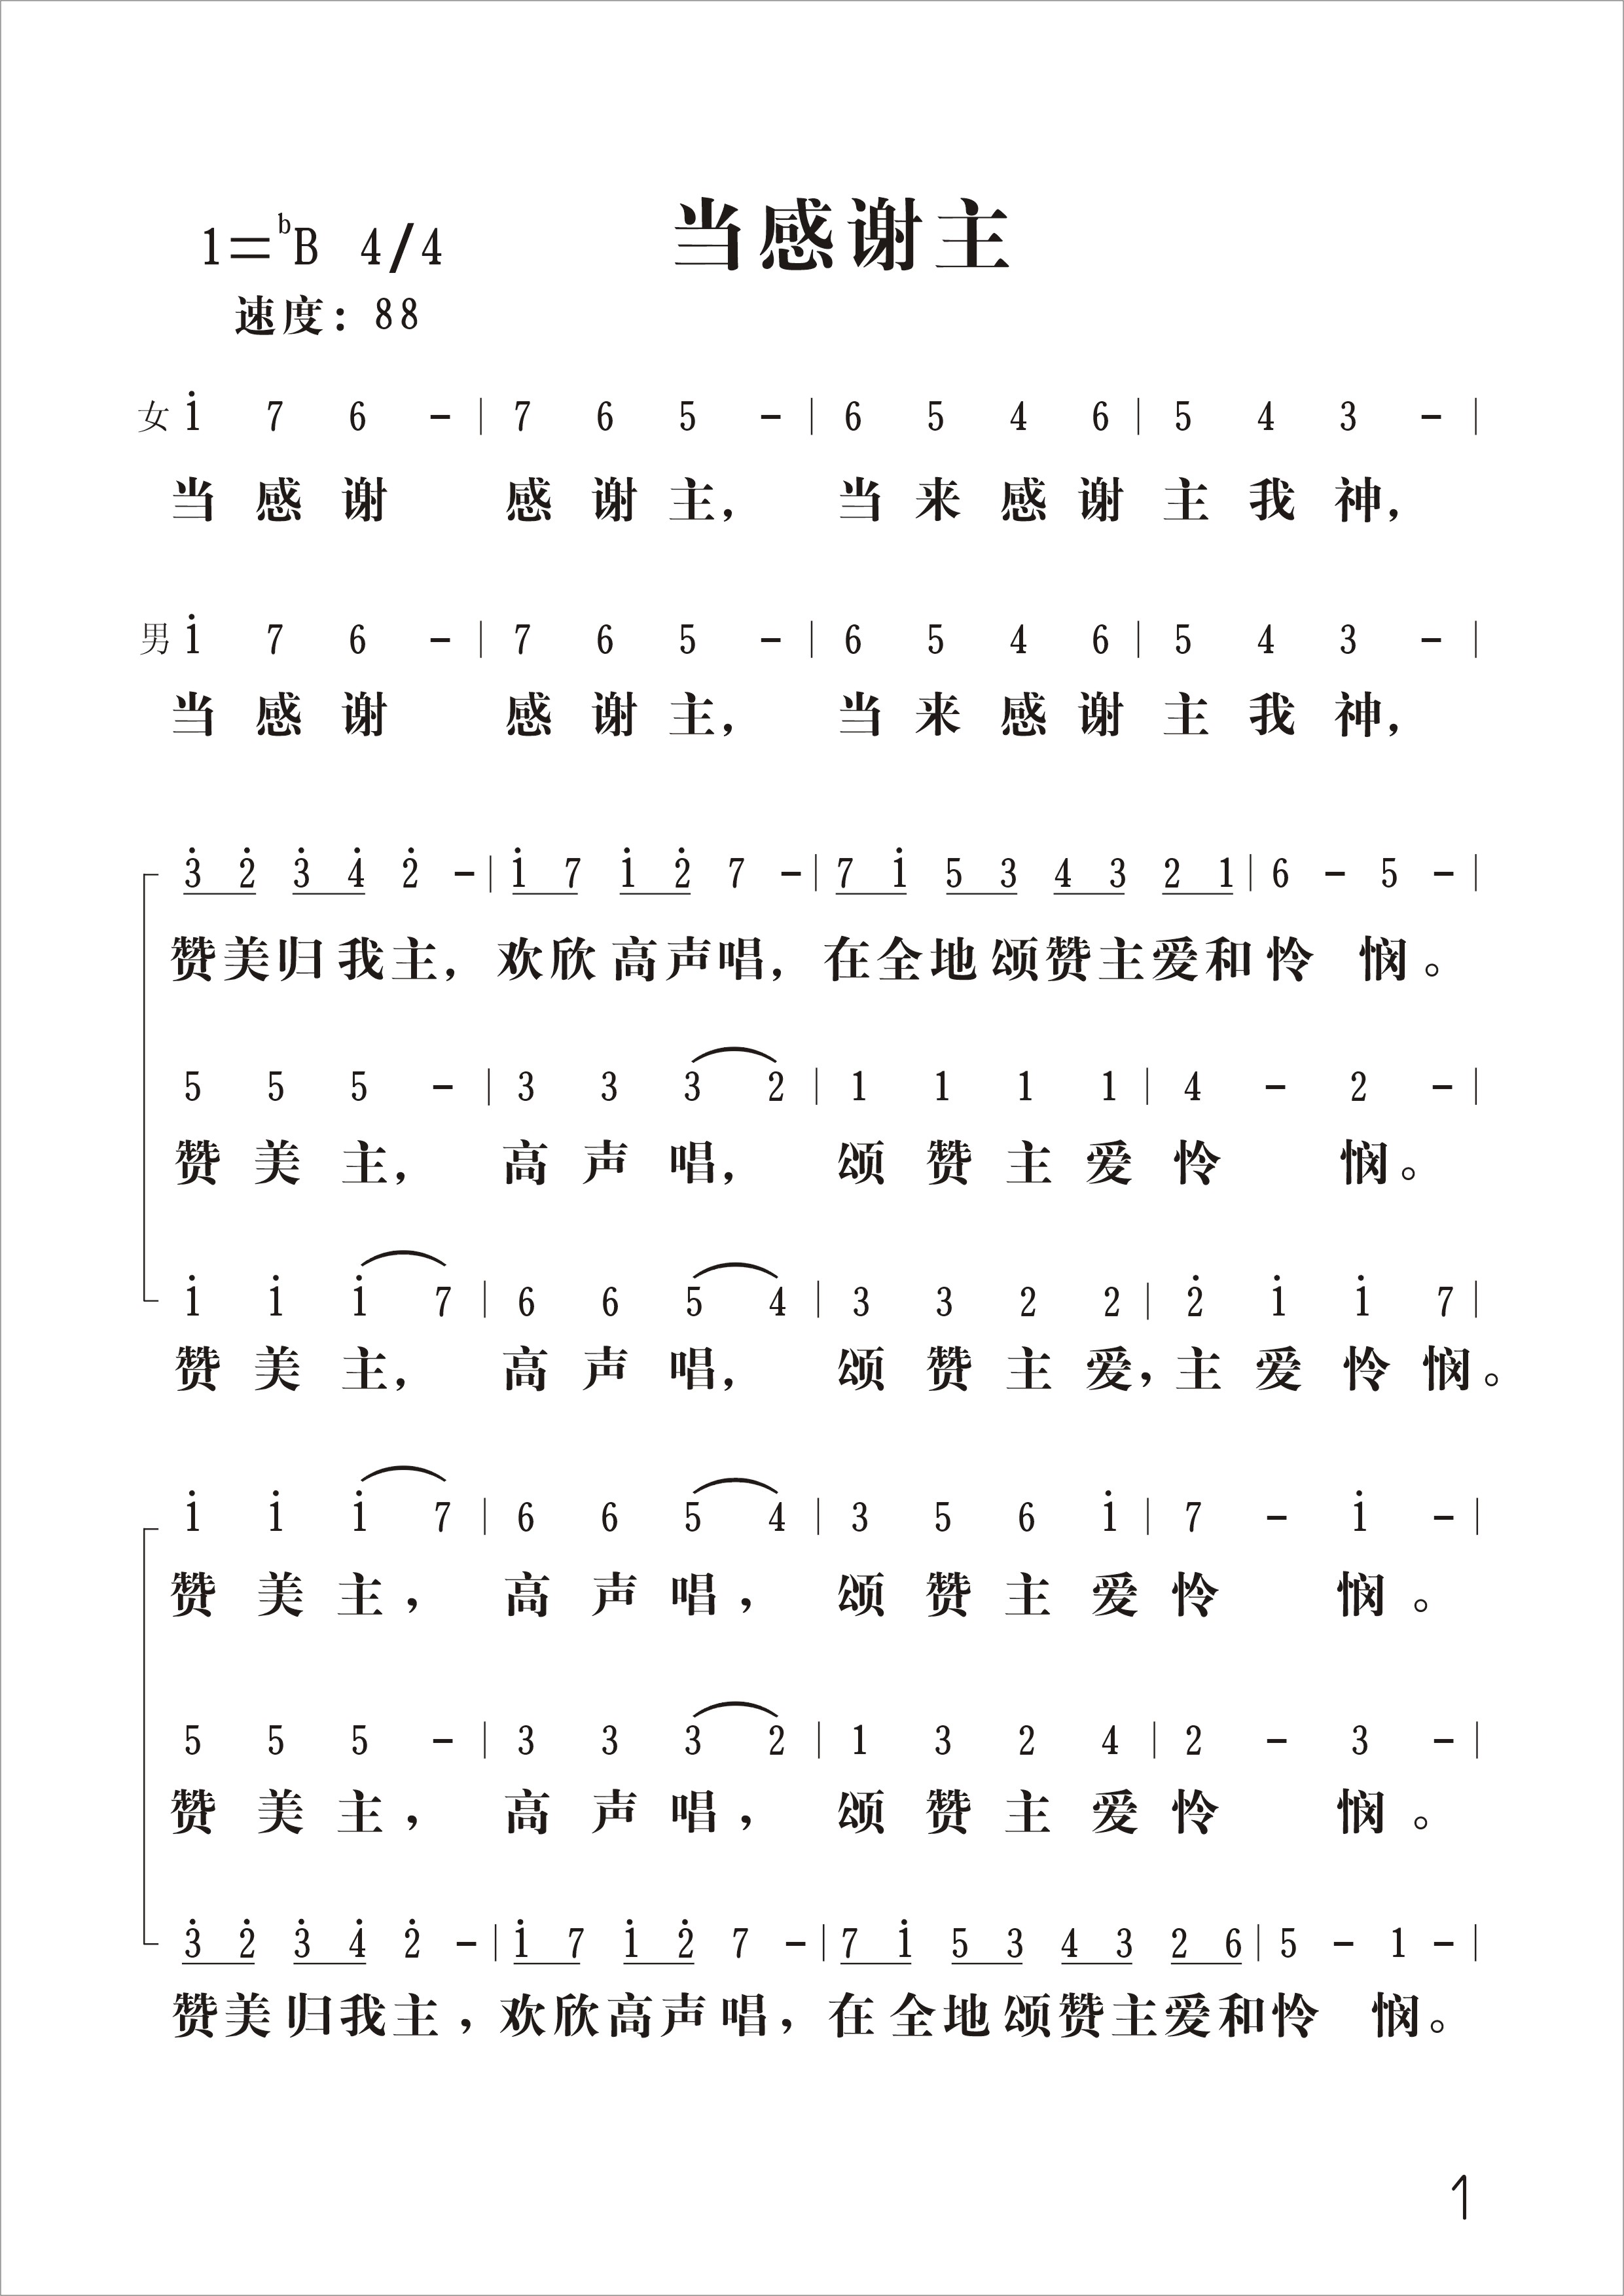 当感谢主
1=ᵇB 4/4
速度：88
女 i̇ 7 6 - | 7 6 5 - | 6 5 4 6 | 5 4 3 - |
当感谢 感谢主，当来感谢主我神，
男 i̇ 7 6 - | 7 6 5 - | 6 5 4 6 | 5 4 3 - |
当感谢 感谢主，当来感谢主我神，
3̇ 2̇ 3̇ 4̇ 2̇ - | i̇ 7 i̇ 2̇ 7 - | 7 i̇ 5 3 4 3 2 1 | 6 - 5 - |
赞美归我主，欢欣高声唱，在全地颂赞主爱和怜 悯。
5 5 5 - | 3 3 3 2 | 1 1 1 1 | 4 - 2 - |
赞美主，高声唱，颂赞主爱怜 悯。
i̇ i̇ i̇ 7 | 6 6 5 4 | 3 3 2 2 | 2̇ i̇ i̇ 7 |
赞美主，高声唱，颂赞主爱，主爱怜悯。
i̇ i̇ i̇ 7 | 6 6 5 4 | 3 5 6 i̇ | 7 - i̇ - |
赞美主，高声唱，颂赞主爱怜 悯。
5 5 5 - | 3 3 3 2 | 1 3 2 4 | 2 - 3 - |
赞美主，高声唱，颂赞主爱怜 悯。
3̇ 2̇ 3̇ 4̇ 2̇ - | i̇ 7 i̇ 2̇ 7 - | 7 i̇ 5 3 4 3 2 6 | 5 - 1 - |
赞美归我主，欢欣高声唱，在全地颂赞主爱和怜 悯。
1